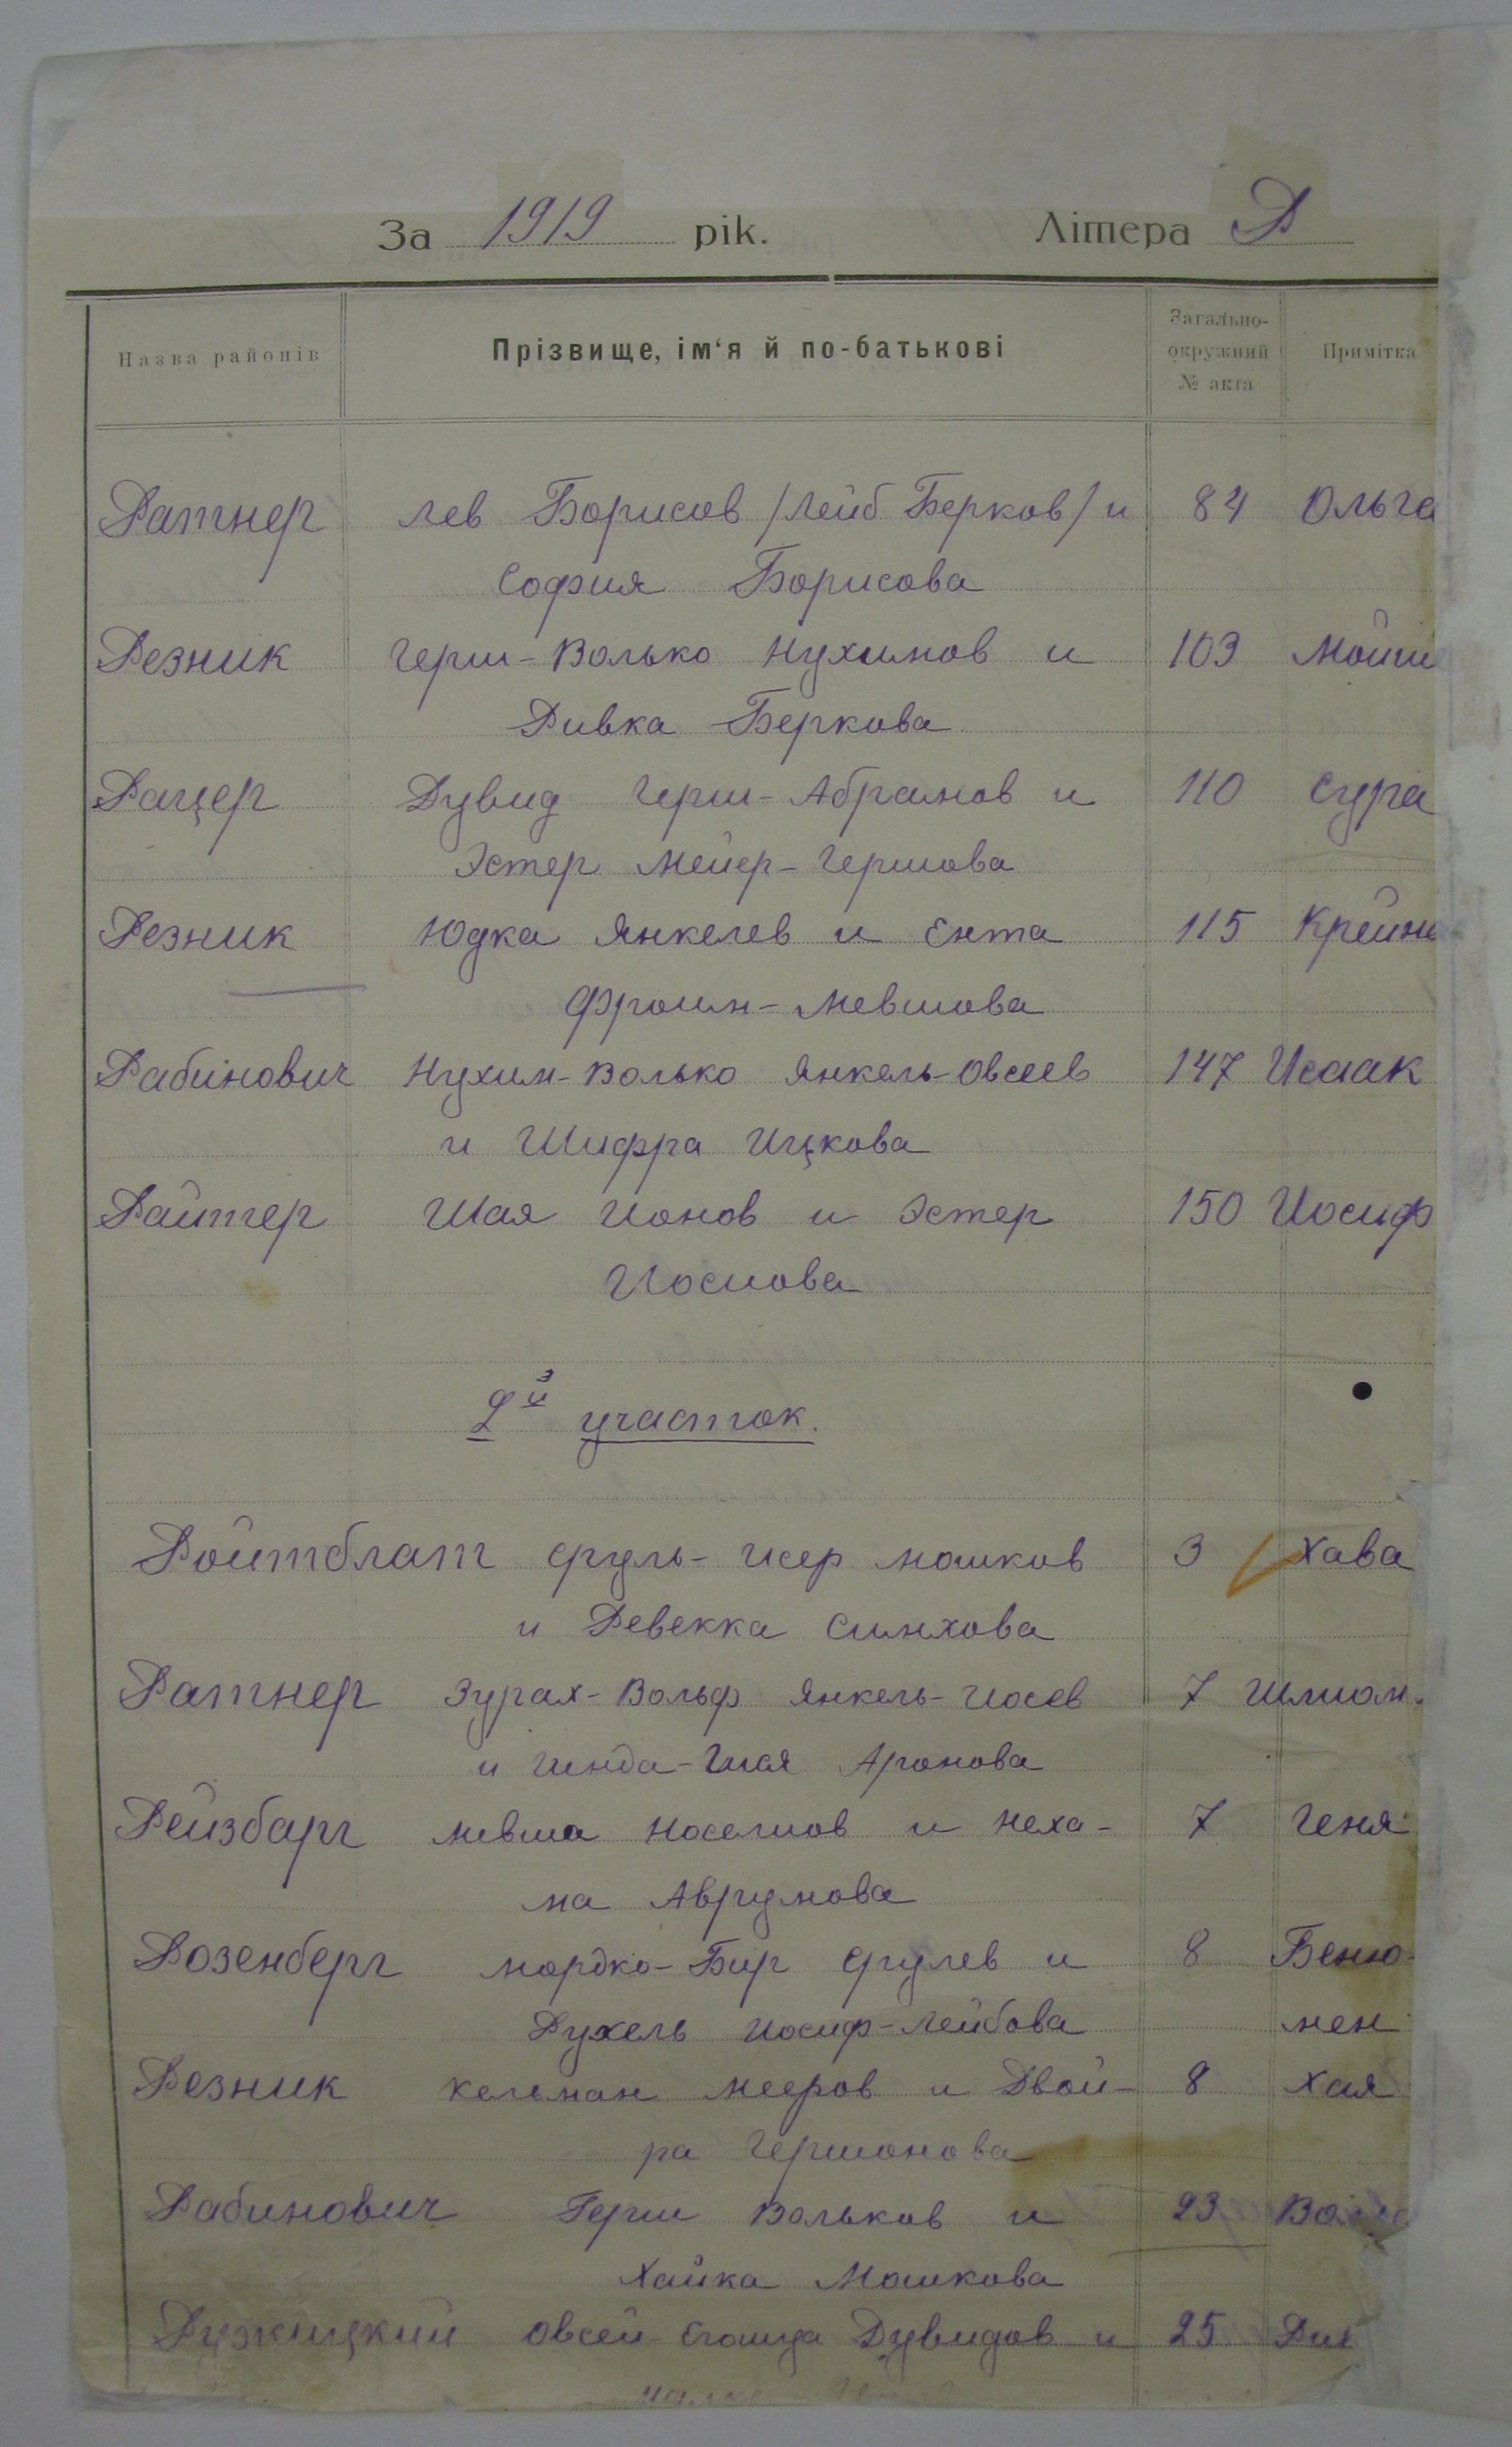 За 1919 рік. Літера Р
Назва районів Прізвище, ім'я й по-батькові Загально-окружний № акта Примітка
Ратнер Лев Борисов /Лейб Берков/ и 84 Ольга
София Борисова
Резник Герш-Волько Нухимов и 103 Мойш
Ривка Беркова
Рацер Дувид Герш-Абрамов и 110 Сура
Эстер Мейер-Гершова
Резник Юдка Янкелев и Ента 115 Крейн
Фроим-Мевшова
Рабинович Нухим-Волько Янкель-Овсеев 147 Исаак
и Шифра Ицкова
Райтер Шая Ионов и Эстер 150 Иосиф
2й участок.
Ройтблат Сруль-Исер Мошков 3 Хава
и Ревекка Симхова
Ратнер Зурах-Вольф Янкель-Иосев 7
и Гинда-Гитя Аронова
Рейзбарг Мевша и Неха- 7 Геня
ма Аврумова
Розенберг Мордко-Бир Срулев и 8 Беню-
Рухель Иосиф-Лейбова мен
Резник Кельман Мееров и Двой- 8 Хая
ра Гершонова
Рабинович Герш Вольков и 23
Хайка Мошкова
Ружицкий Овсей Дувидов и 25